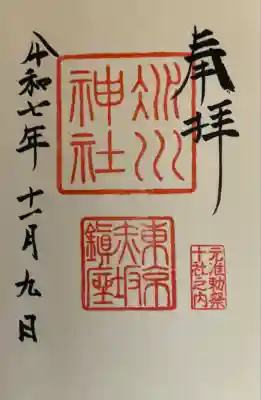 奉拝
氷川
神社
東京
赤坂
鎮座
元准勅祭
十社之内
令和七年 十一月九日